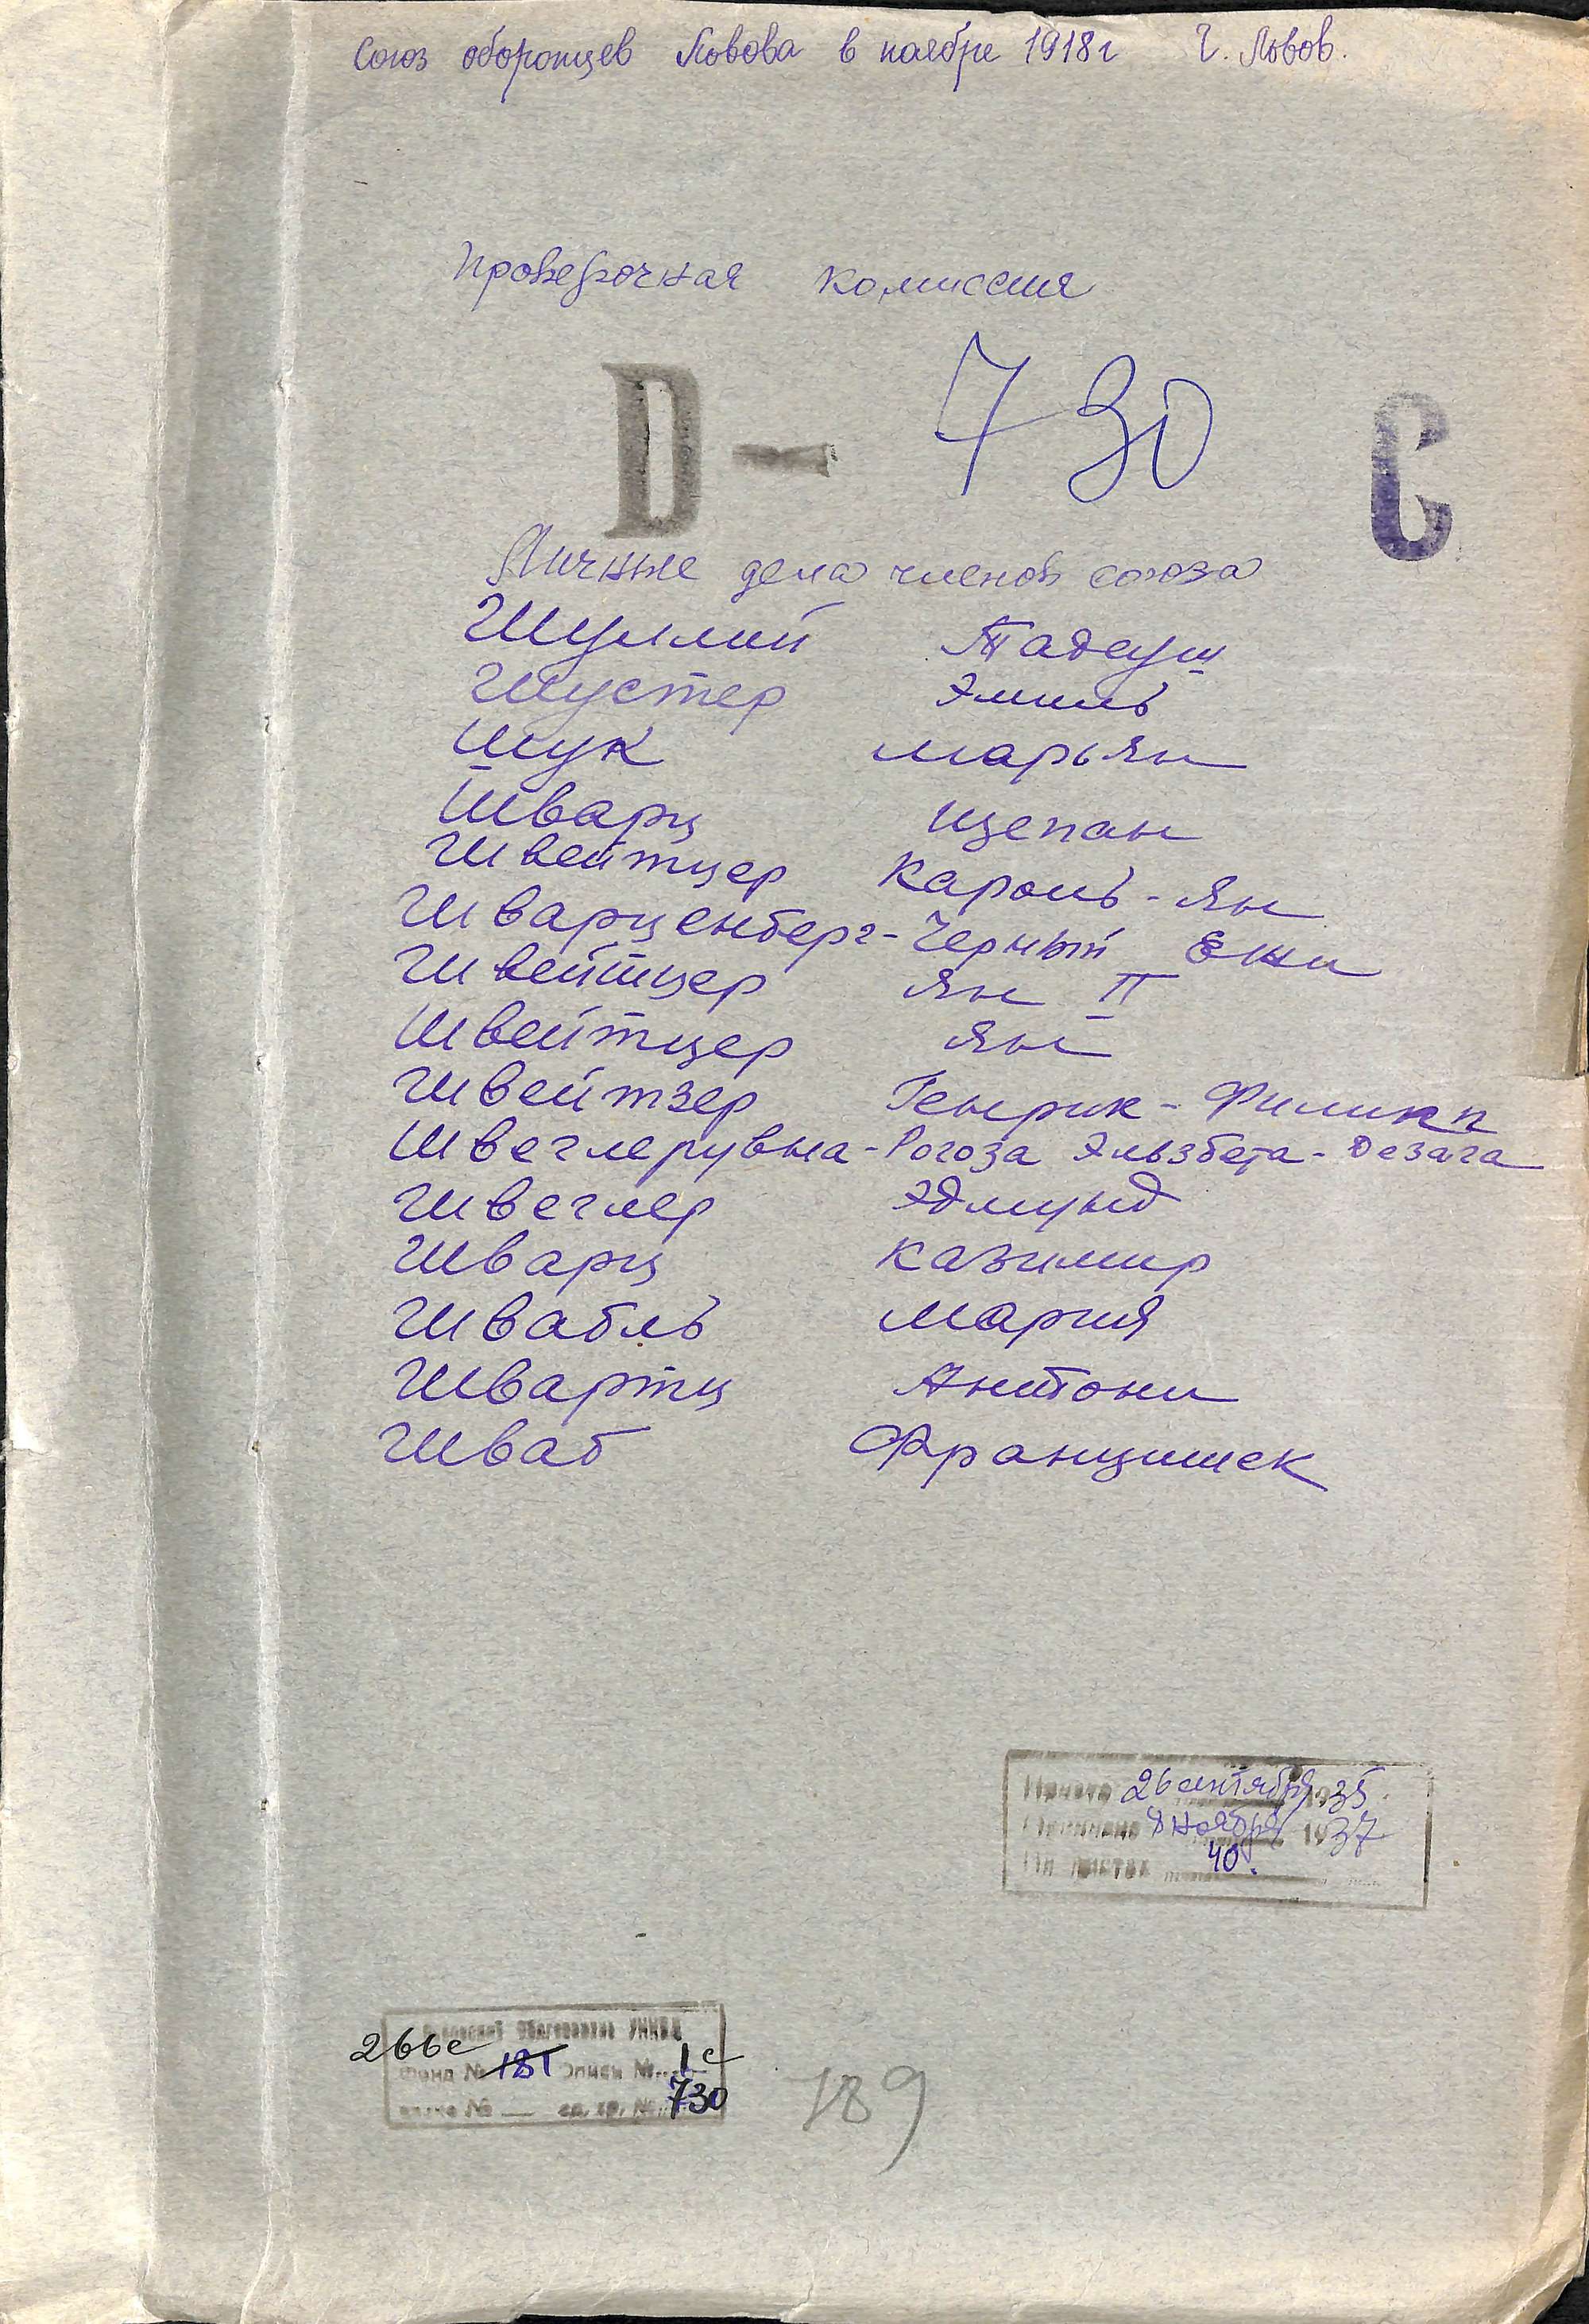 Союз оборонцев Львова в ноябре 1918 г Г. Львов.
Проверочная комиссия
D - 730 С
Личные дела членов союза
Шуллий Тадеуш
Шустер Эмиль
Шук Марьян
Шварц Щепан
Швейтцер Кароль-Ян
Шварценберг-Черный Ежи
Швейтцер Ян II
Швейтцер Ян
Швейтзер Генрик-Филипп
Швеглерувна-Рогоза Эльзбета-
Швеглер Эдмунд
Шварц Казимир
Швабль Мария
Швартц Антони
Шваб Францишек
Начато 26 сентября 1935
8 ноября 1937
На листах 40.
УНКВД
266с Фонд № 181 Опись № 1с
ед. хр. № 730
189